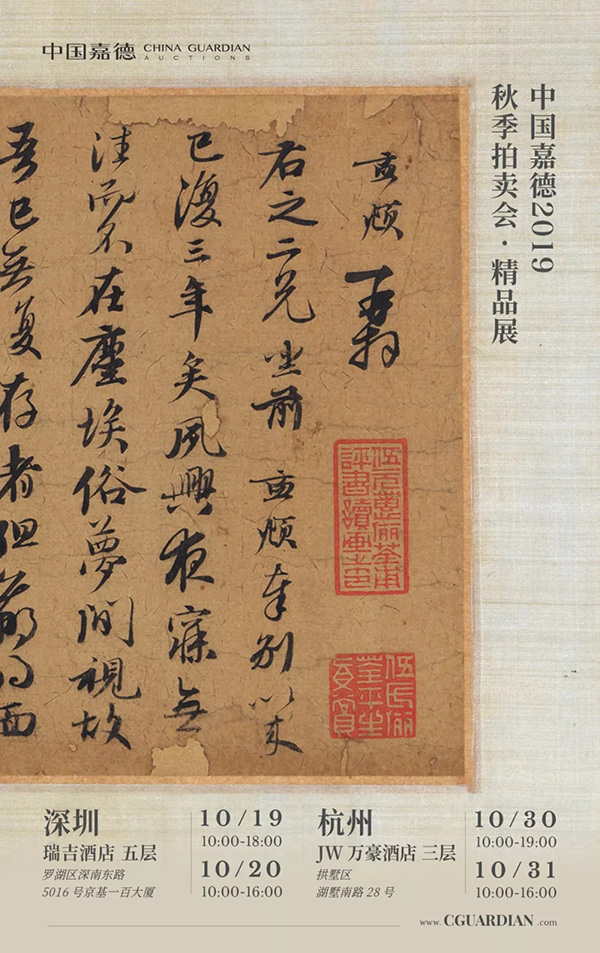 中国嘉德 CHINA GUARDIAN
AUCTIONS
中国嘉德2019
秋季拍卖会·精品展
孟頫再拜
右之二兄坐前孟頫奉別以来
已復三年矣夙興夜寐無
往而不在塵埃俗夢間視故
吾已無复存者但羸得面
伍元蕙儷荃甫
評書讀畫之印
伍氏儷
荃平生
真賞
深圳
瑞吉酒店 五层
罗湖区深南东路
5016 号京基一百大厦
10/19
10:00-18:00
10/20
10:00-16:00
杭州
JW 万豪酒店 三层
拱墅区
湖墅南路 28 号
10/30
10:00-19:00
10/31
10:00-16:00
www.CGUARDIAN.com